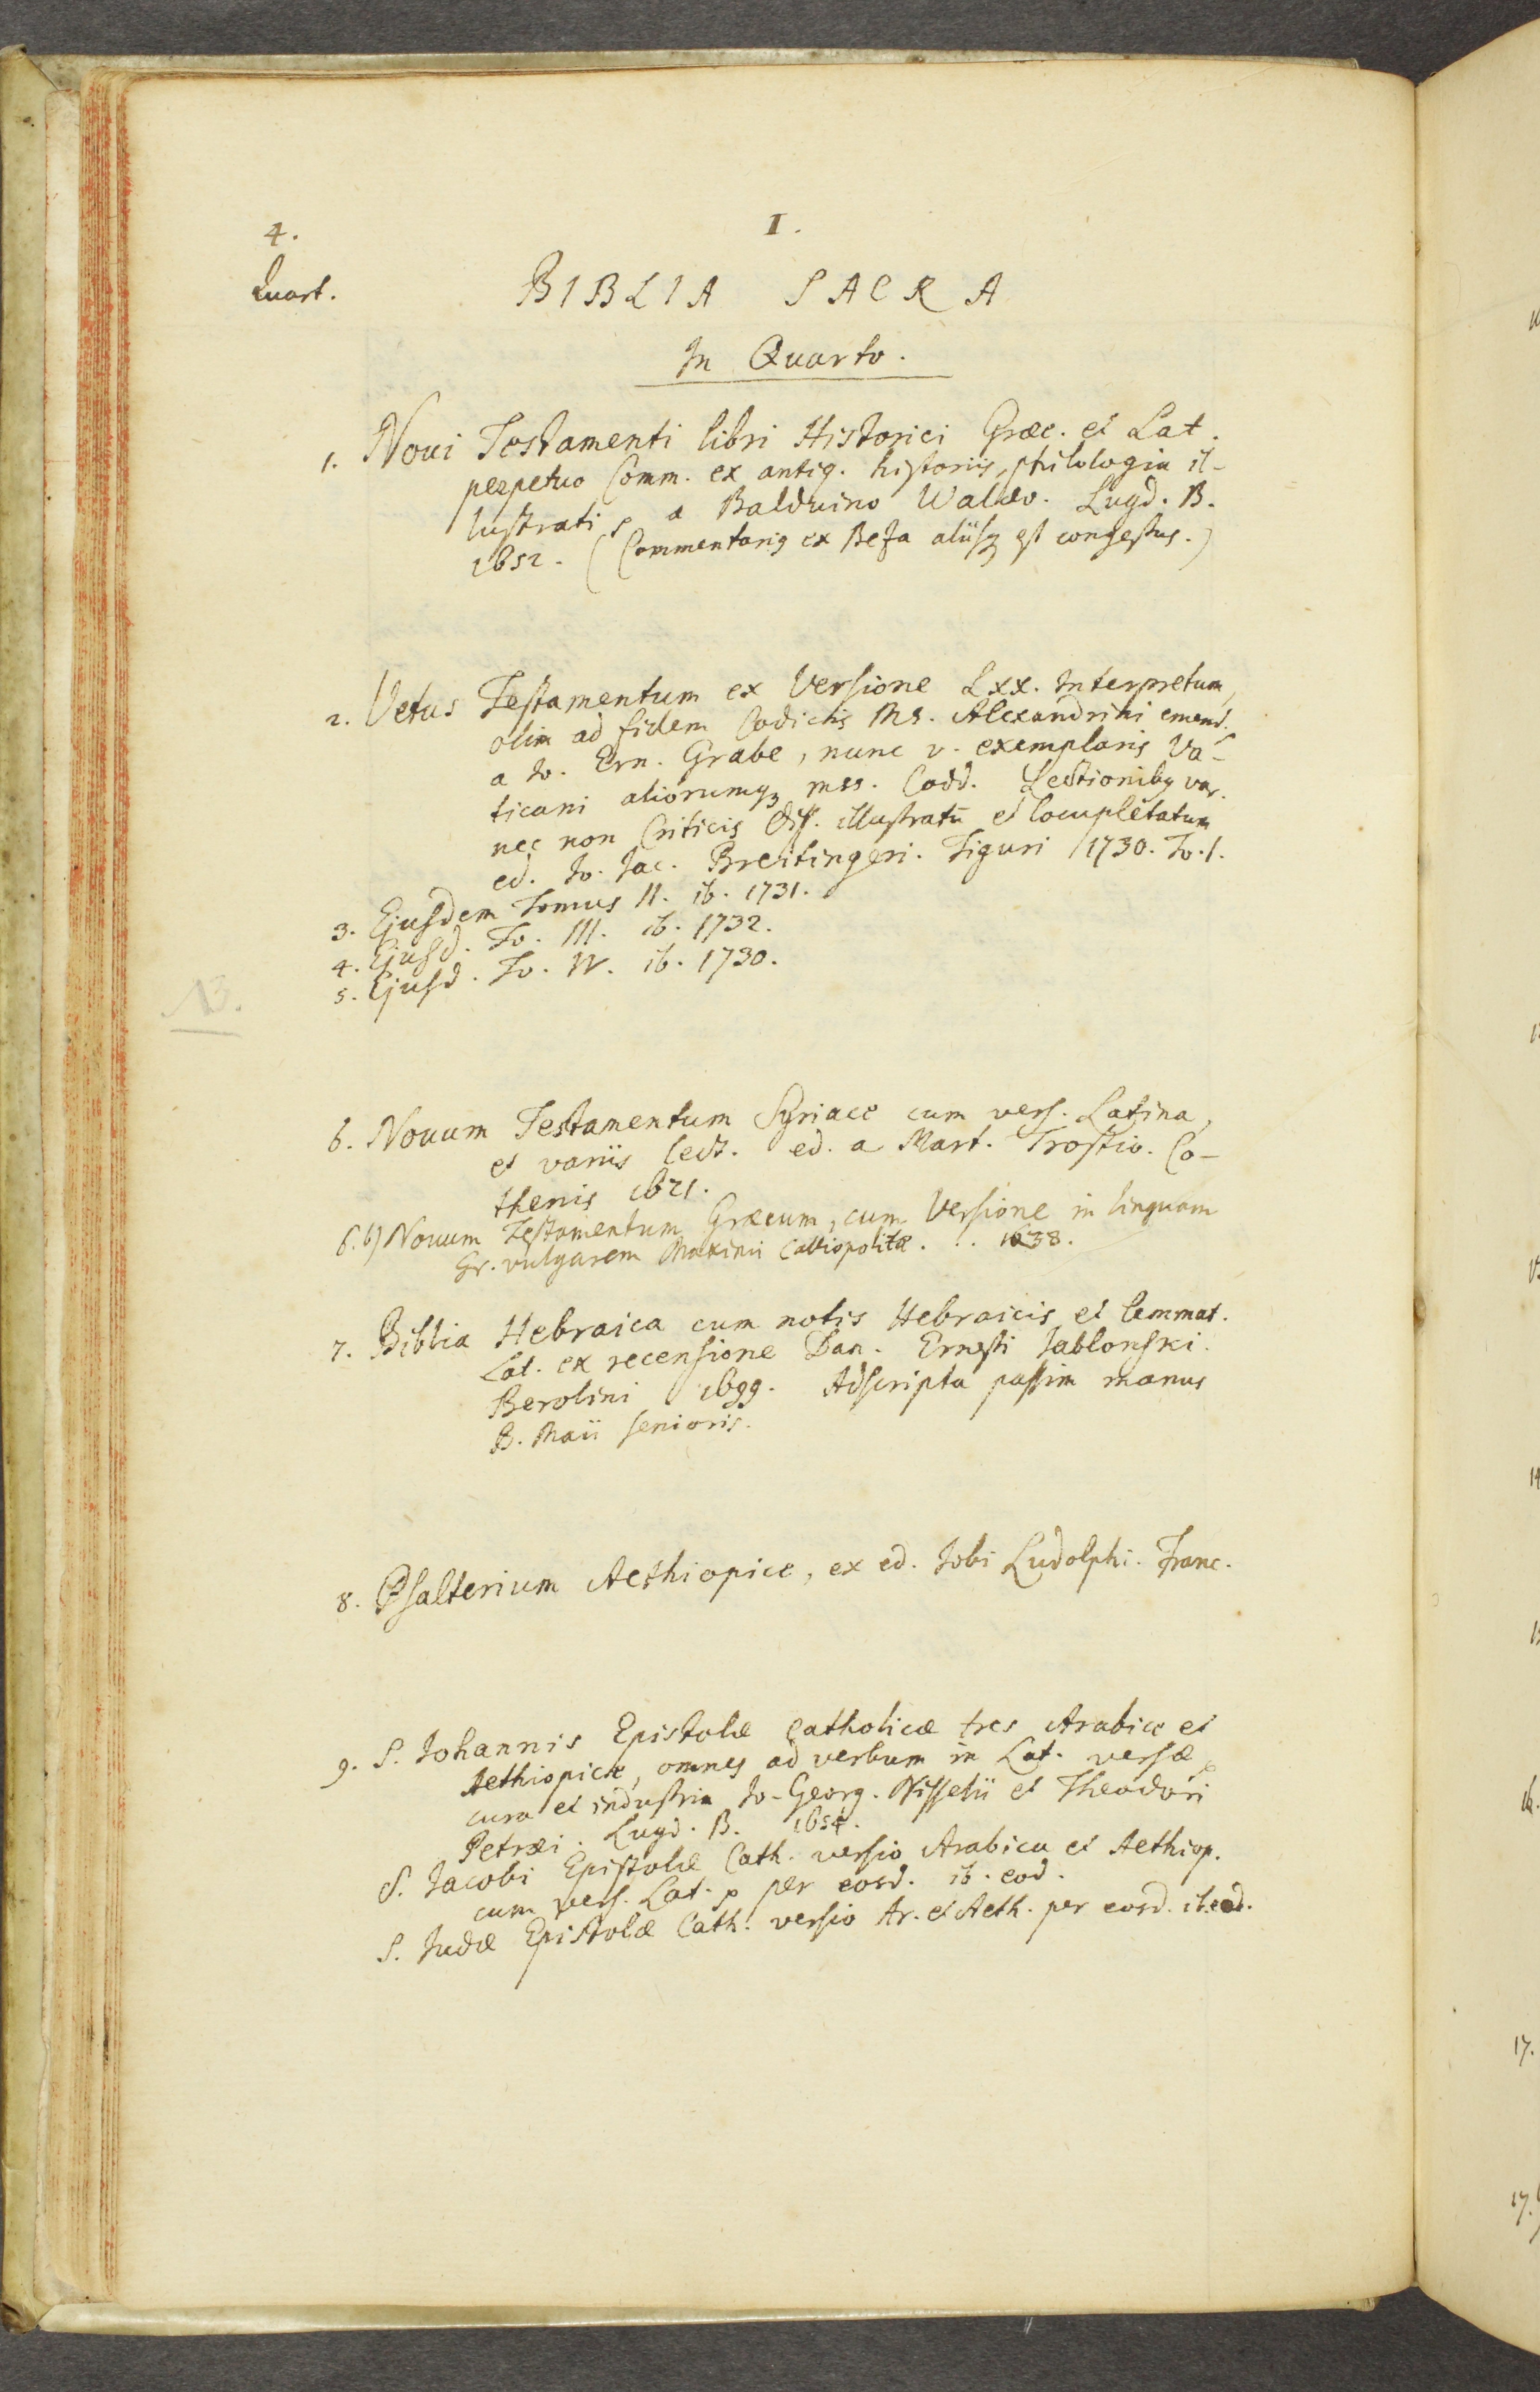 4.
I.
Quart.
BIBLIA SACRA
In Quarto.
1. Noui Testamenti libri Historici Græc. et Lat.
perpetuo Comm. ex antiq. historiis, philologia il-
lustrati, a Balduino Walæo. Lugd. B.
1652. (Commentariq ex Beza aliisq est congestus.)
2. Vetus Testamentum ex Versione Lxx. Interpretum,
olim ad fidem Codicis Ms. Alexandrini emend.
a Io. Ern. Grabe, nunc v. exemplaris Va-
ticani aliorumq mss. Codd. Lectionibq var.
nec non Criticis Diss. illustratū et locupletatum
ed. Io. Jac. Breitingeri. Tiguri 1730. To. I.
3. Ejusdem Tomus II. ib. 1731.
4. Ejusd. To. III. ib. 1732.
5. Ejusd. To. IV. ib. 1730.
6. Nouum Testamentum Syriace cum vers. Latina,
et variis lect. ed. a Mart. Trostio. Co-
thenis 1621.
6. b) Nouum Testamentum Græcum, cum Versione in linguam
Gr. vulgarem Maximi Calliopolitæ. . . 1638.
7. Biblia Hebraica cum notis Hebraicis et lemmat.
Lat. ex recensione Dan. Ernesti Jablonski.
Berolini 1699. Adscripta passim manus
B. Maii senioris.
8. Psalterium Aethiopice, ex ed. Jobi Ludolphi. Franc.
9. S. Johannis Epistolæ Catholicæ tres Arabice et
Aethiopice, omnes ad verbum in Lat. versæ,
cura et industria Jo-Georg. Nisselii et Theodori
Petræi. Lugd. B. 1654.
S. Jacobi Epistolæ Cath. versio Arabica et Aethiop.
cum vers. Lat. p per eosd. ib. eod.
S. Judæ Epistolæ Cath. versio Ar. et Aeth. per eosd. ib. eod.
17.